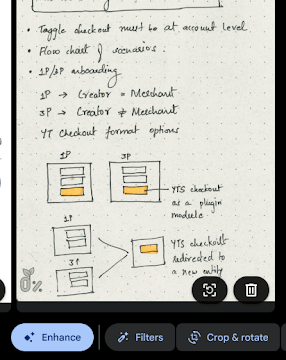 • Toggle checkout must be at account level
• Flow chart of scenarios.
• 1P/3P onboarding
1P → Creator = Merchant
3P → Creator ≠ Merchant
YT Checkout format options
1P 3P
YTS checkout
as a plugin
module.
1P
3P
YTS checkout
redirected to
a new entity
%
Enhance
Filters
Crop & rotate